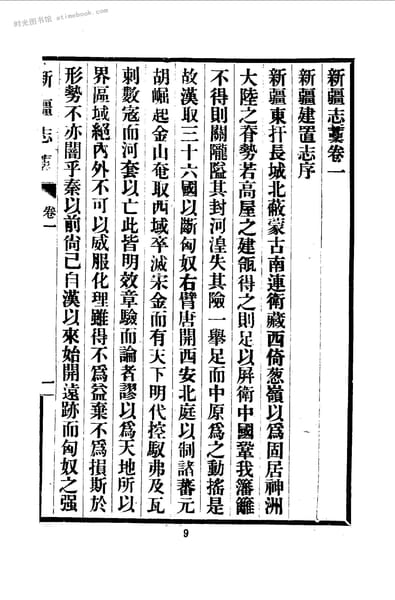 时光图书馆 - etimebook.com
新疆志藁卷一
新疆建置志序
新疆東扞長城北蔽蒙古南連衛藏西倚葱嶺以爲固居神洲
大陸之脊勢若高屋之建瓴得之則足以屏衛中國鞏我藩籬
不得則關隴隘其封河湟失其險一舉足而中原爲之動搖是
故漢取三十六國以斷匈奴右臂唐開西安北庭以制諸蕃元
胡崛起金山奄取西域卒滅宋金而有天下明代控馭弗及瓦
剌數寇而河套以亡此皆明效章驗而論者謬以爲天地所以
界區域絕內外不可以威服化理雖得不爲益棄不爲損斯於
形勢不亦闇乎秦以前尙已自漢以來始開遠跡而匈奴之强
新疆志藁
卷一
一
9